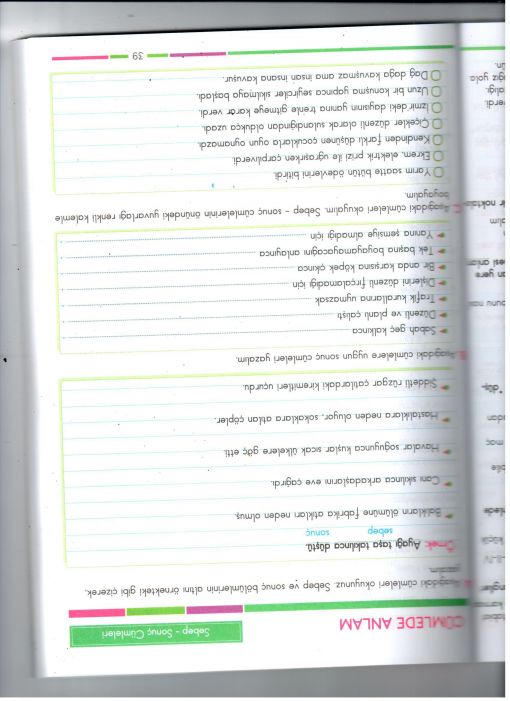 CÜMLEDE ANLAM
Sebep - Sonuç Cümleleri
Aşağıdaki cümleleri okuyunuz. Sebep ve sonuç bölümlerinin altını örnekteki gibi çizerek,
yazalım.
Örnek: Ayağı taşa takılınca düştü.
sebep sonuç
Balıkların ölümüne fabrika atıkları neden olmuş.
Canı sıkılınca arkadaşlarını eve çağırdı.
Havalar soğuyunca kuşlar sıcak ülkelere göç etti.
Hastalıklara neden oluyor, sokaklara atılan çöpler.
Şiddetli rüzgar çatılardaki kiremitleri uçurdu.
Aşağıdaki cümlelere uygun sonuç cümleleri yazalım.
Sabah geç kalkınca
Düzenli ve planlı çalıştı
Trafik kurallarına uymazsak
Dişlerini düzenli fırçalamadığı için
Bir anda karşısına köpek çıkınca
Tek başına boyayamayacağını anlayınca
Yanına şemsiye almadığı için
C. Aşağıdaki cümleleri okuyalım. Sebep - sonuç cümlelerinin önündeki yuvarlağı renkli kalemle
boyayalım.
Yarım saatte bütün ödevlerini bitirdi.
Ekrem, elektrik prizi ile uğraşırken çarpılıverdi.
Kendinden farklı düşünen çocuklarla oyun oynamazdı.
Çiçekler düzenli olarak sulandığından oldukça uzadı.
İzmir'deki dayısının yanına trenle gitmeye karar verdi.
Uzun bir konuşma yapınca seyirciler sıkılmaya başladı.
Dağ dağa kavuşmaz ama insan insana kavuşur.
39